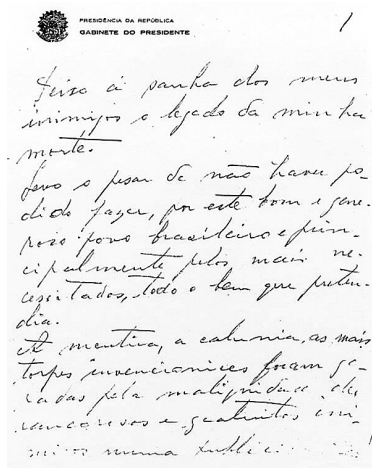 PRESIDÊNCIA DA REPÚBLICA
GABINETE DO PRESIDENTE
1
Deixo à sanha dos meus
inimigos o legado da minha
morte.
Levo o pesar de não haver po-
dido fazer, por este bom e gene-
roso povo brasileiro e prin-
cipalmente pelos mais ne-
cessitados, todo o bem que preten-
dia.
A mentira, a calunia, as mais
torpes invencionices foram ge-
radas pela malignidade de
rancorosos e gratuitos ini-
migos numa public